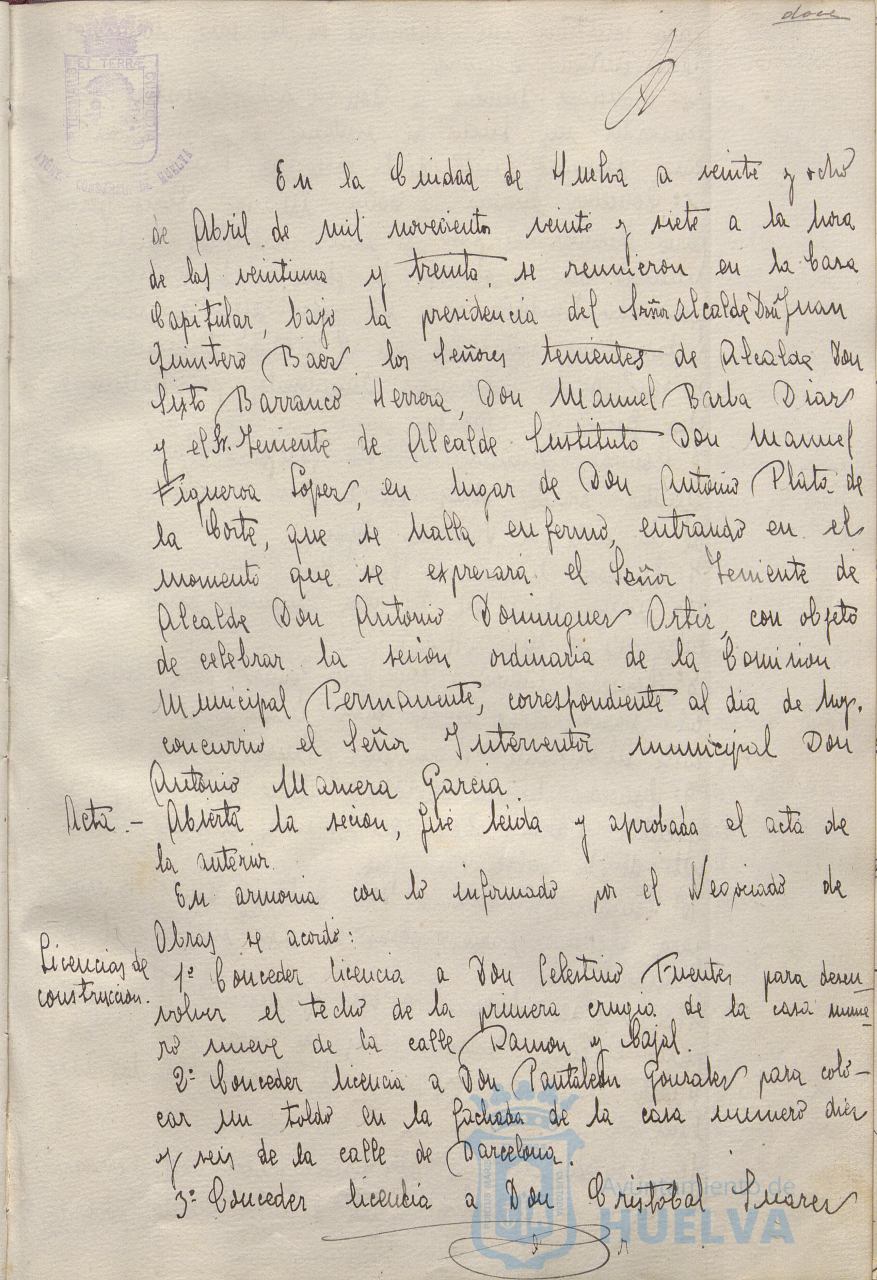 doce
PORTUS MARIS ET TERRÆ CUSTODIA
AYUNT. CONSTNAL. DE HUELVA
En la Ciudad de Huelva a veinte y ocho
de Abril de mil novecientos veinte y siete a la hora
de las veintiuna y treinta, se reunieron en la Casa
Capitular, bajo la presidencia del Señor Alcalde Don Juan
Quintero Baez, los Señores tenientes de Alcalde Don
Sixto Barranco Herrera, Don Manuel Barba Diaz
y el Sr. Teniente de Alcalde Sustituto Don Manuel
Figueroa Lopez, en lugar de Don Antonio Plata de
la Corte, que se halla enfermo, entrando en el
momento que se expresará el Señor Teniente de
Alcalde Don Antonio Dominguez Ortiz, con objeto
de celebrar la sesion ordinaria de la Comision
Municipal Permanente, correspondiente al dia de hoy.
concurrió el Señor Interventor municipal Don
Antonio Mancera Garcia.
Acta.- Abierta la secion, fué leida y aprobada el acta de
la anterior.
En armonia con lo informado por el Negociado de
Obras se acordó:
Licencias de
construccion.
1º Conceder licencia a Don Celestino Fuentes para desen
volver el techo de la primera crugia de la casa nume-
ro nueve de la calle Ramon y Cajal.
2º Conceder licencia a Don Pantaleón Gonzalez para colo-
car un toldo en la fachada de la casa numero diez
y seis de la calle de Barcelona.
3º Conceder licencia a Don Cristóbal Suarez
Ayuntamiento de
HUELVA